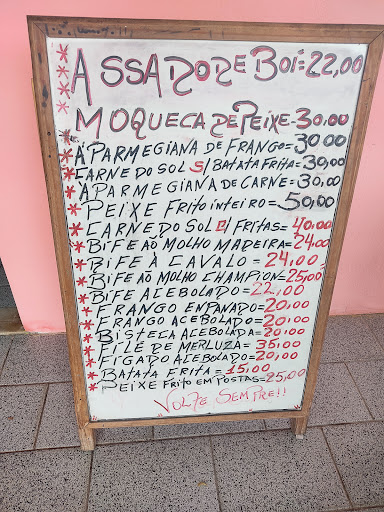 ASSADO DE BOI=22,00
MOQUECA DE PEIXE-30,00
A PARMEGIANA DE FRANGO=30,00
CARNE DO SOL S/BATATA FRITA=30,00
A PARMEGIANA DE CARNE=30,00
PEIXE FRITO INTEIRO=50,00
CARNE DO SOL C/ FRITAS=40,00
BIFE AO MOLHO MADEIRA=24,00
BIFE À CAVALO = 24,00
BIFE AO MOLHO CHAMPION=25,00
BIFE ACEBOLADO=22,00
FRANGO ENPANADO=20,00
FRANGO ACEBOLADO=20,00
BISTECA ACEBOLADA=20,00
FILE DE MERLUZA=35,00
FIGADO ACEBOLADO=20,00
BATATA FRITA=15,00
PEIXE FRITO EM POSTAS=25,00
VOLTE SEMPRE!!